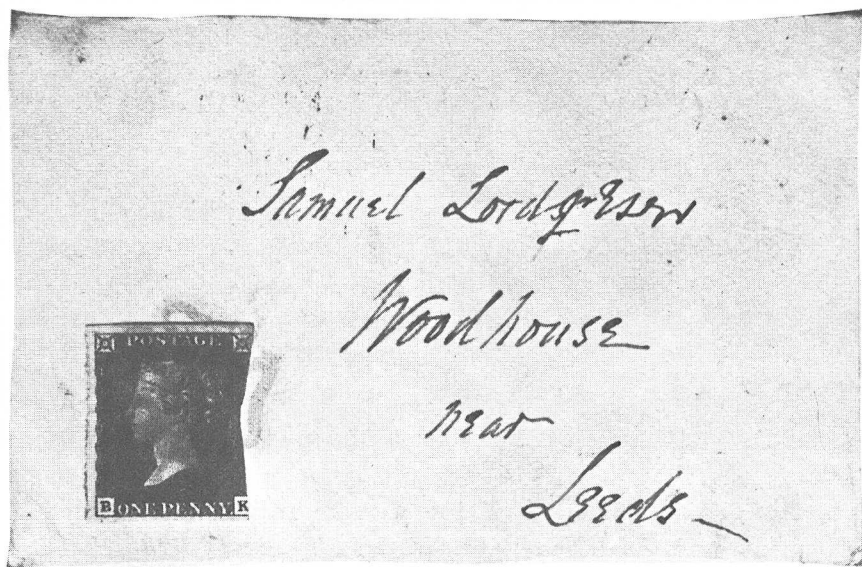 Samuel Lord Esqr
Woodhouse
near
Leeds
POSTAGE
B ONE PENNY K